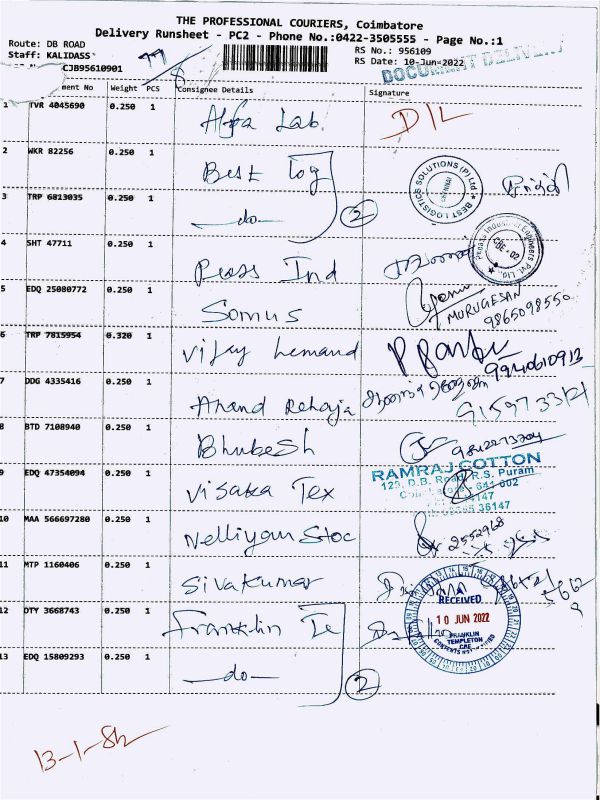 THE PROFESSIONAL COURIERS, Coimbatore
Delivery Runsheet - PC2 - Phone No.:0422-3505555 - Page No.:1
Route: DB ROAD
Staff: KALIDASS
CJB95610901
RS No.: 956109
RS Date: 10-Jun-2022
DOCUMENT DELIVERY
ment No Weight PCS Consignee Details Signature
1 TVR 4045690 0.250 1 Alfa Lab D/L
2 WKR 82256 0.250 1 Best log
BEST LOGISTICS SOLUTIONS (P) Ltd
CHENNAI
3 TRP 6813035 0.250 1 -do- 2
4 SHT 47711 0.250 1 Ind
CBE-02
5 EDQ 25080772 0.250 1 Somus MURUGESAN
9865098550
6 TRP 7815954 0.320 1 Vijay 9940610913
7 DDG 4335416 0.250 1 Anand Raheja
8 BTD 7108940 0.250 1 Bhubesh
RAMRAJ COTTON
129, D.B. Road, R.S. Puram
9 EDQ 47354094 0.250 1 Visaka Tex
36147
10 MAA 566697280 0.250 1 Nelliyan Stoc 2552968
11 MTP 1160406 0.250 1 Sivakumar
12 DTY 3668743 0.250 1 Franklin Te
RECEIVED
10 JUN 2022
FRANKLIN
TEMPLETON
CBE
13 EDQ 15809293 0.250 1 -do- 2
13-1-82